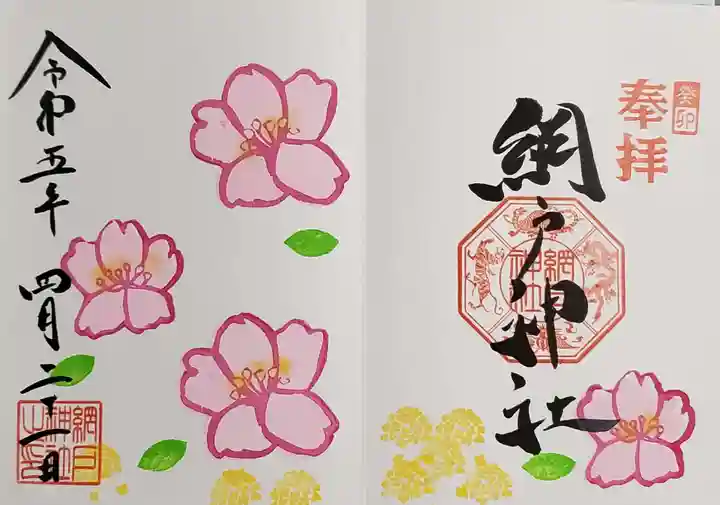 奉拝
癸卯
網戸神社
網戸神社
令和五年 四月二十一日
網戸神社之印